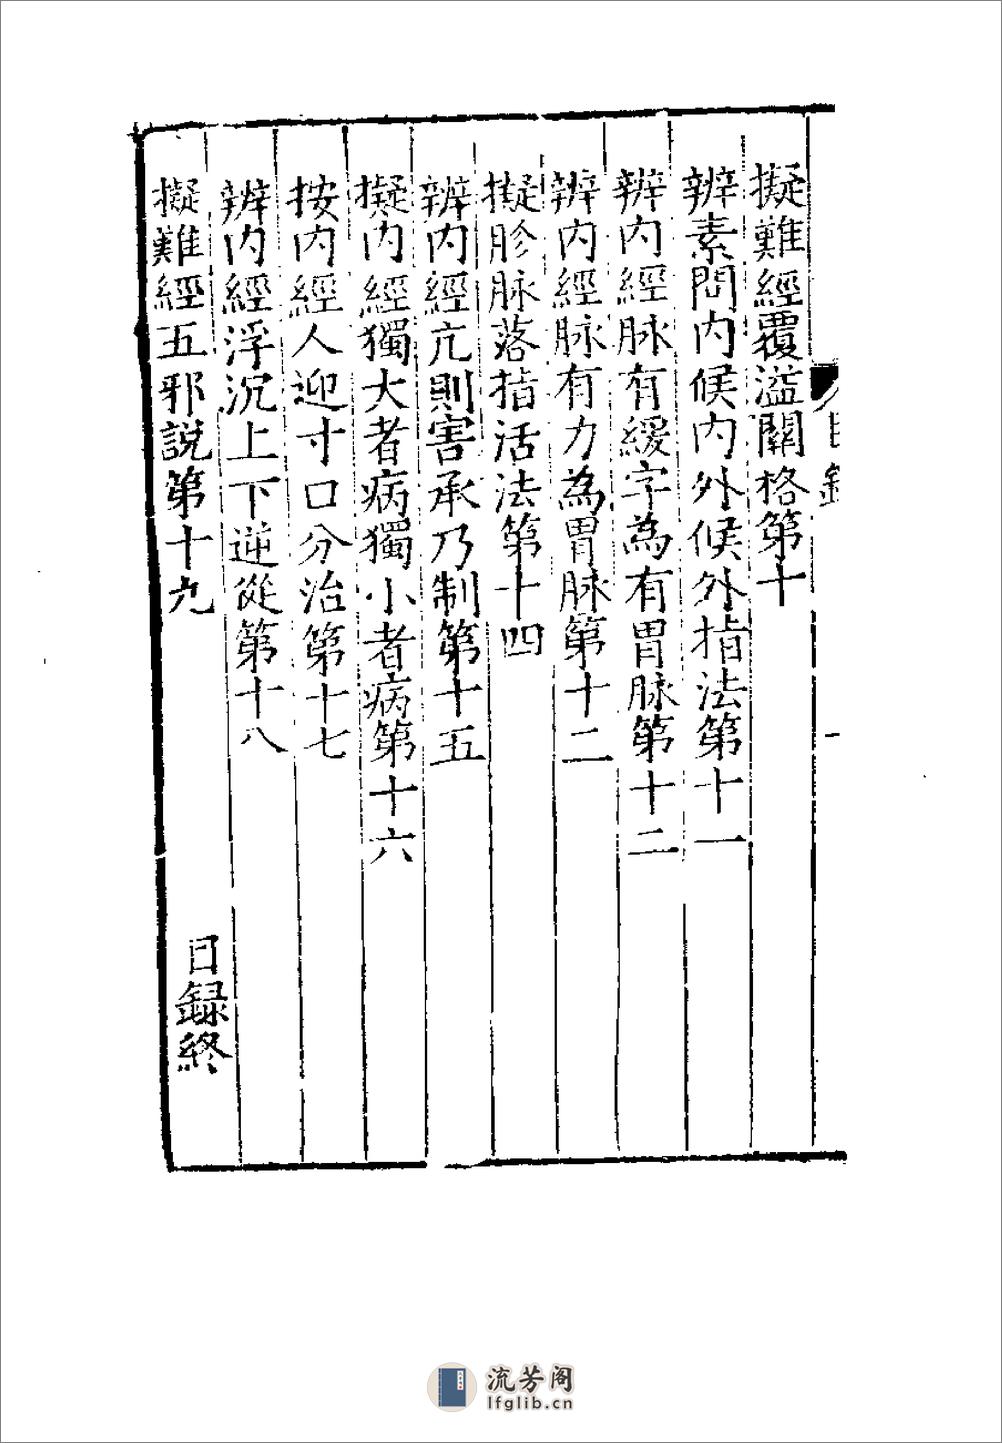 擬難經覆溢關格第十
辨素問内候内外候外指法第十一
辨内經脉有緩字為有胃脉第十二
辨内經脉有力為胃脉第十二
擬胗脉落指活法第十四
辨内經亢則害承乃制第十五
擬内經獨大者病獨小者病第十六
按内經人迎寸口分治第十七
辨内經浮沉上下逆從第十八
擬難經五邪説第十九
目録終
流芳阁
lfglib.cn